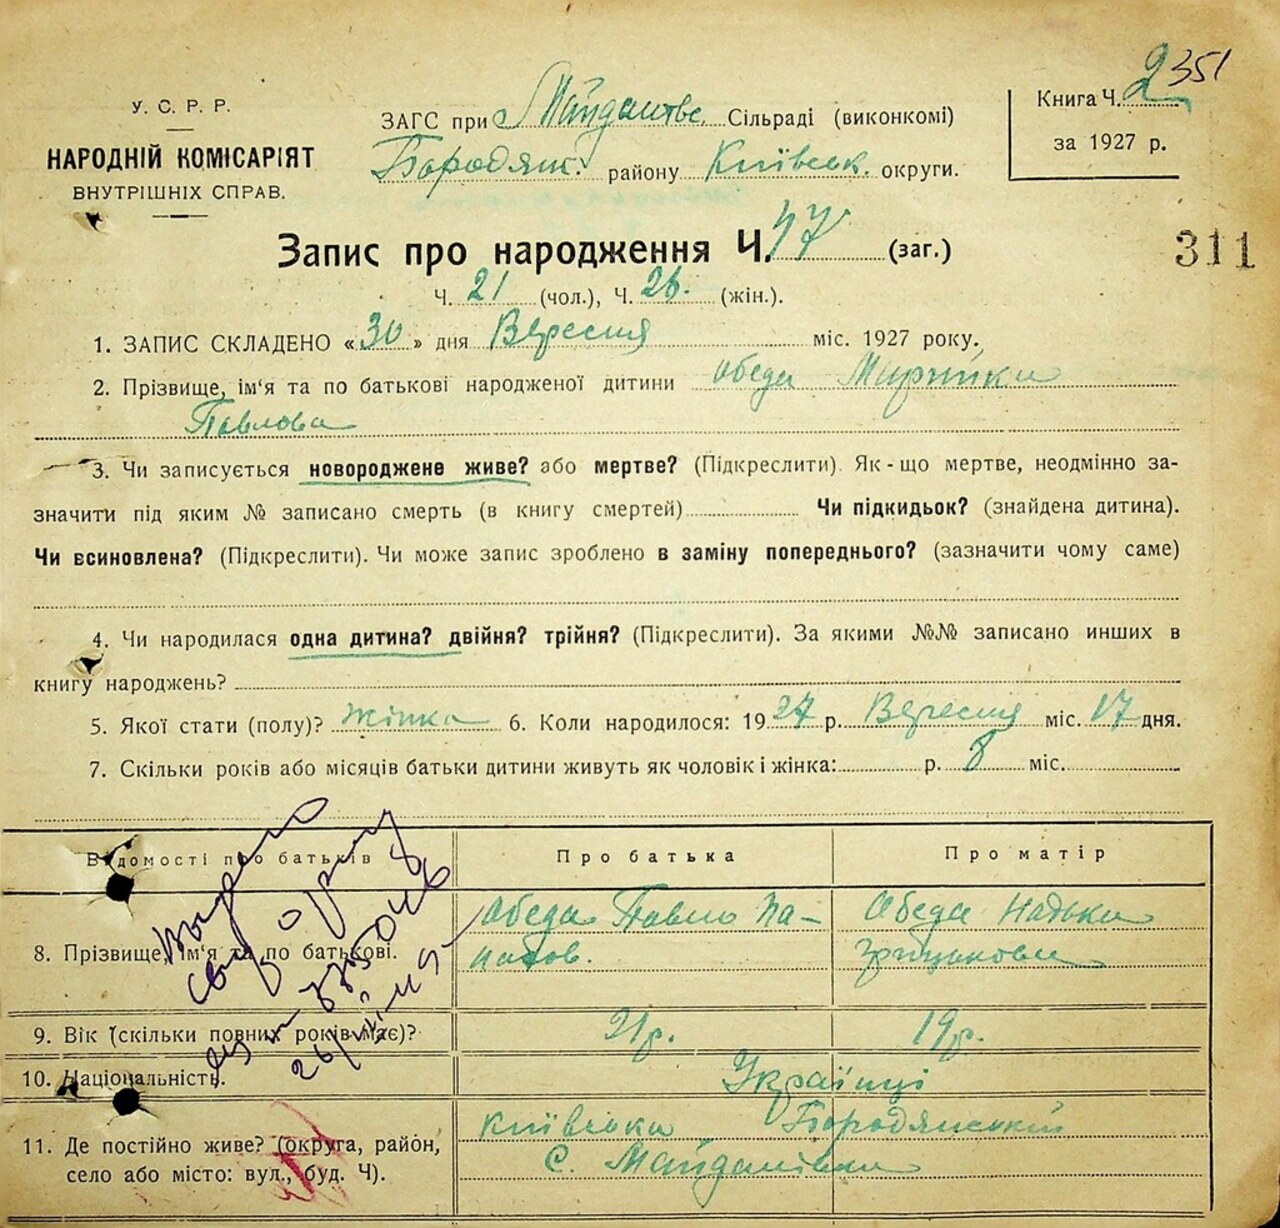 351
У. С. Р. Р.
НАРОДНІЙ КОМІСАРІЯТ
ВНУТРІШНІХ СПРАВ.
ЗАГС при Сільраді (виконкомі)
Бородянс. району Київськ. округи.
Книга Ч. 2
за 1927 р.
Запис про народження Ч. 47 (заг.)
311
Ч. 21 (чол.), Ч. 26. (жін.).
1. ЗАПИС СКЛАДЕНО «30» дня Вересня міс. 1927 року.
2. Прізвище, ім'я та по батькові народженої дитини Обеда Марійка
Павлова
3. Чи записується новороджене живе? або мертве? (Підкреслити). Як-що мертве, неодмінно за-
значити під яким № записано смерть (в книгу смертей) Чи підкидьок? (знайдена дитина).
Чи всиновлена? (Підкреслити). Чи може запис зроблено в заміну попереднього? (зазначити чому саме)
4. Чи народилася одна дитина? двійня? трійня? (Підкреслити). За якими №№ записано инших в
книгу народжень?
5. Якої стати (полу)? Жінка 6. Коли народилося: 1927 р. Вересня міс. 17 дня.
7. Скільки років або місяців батьки дитини живуть як чоловік і жінка: р. 8 міс.
Відомості про батьків Про батька Про матір
8. Прізвище, ім'я та по батькові. Обеда Павло Па- Обеда Надька
натов. Грицькова
9. Вік (скільки повних років має)? 21р. 19р.
10. Національність. Українці
11. Де постійно живе? (округа, район, Київська Бородянський
село або місто: вул., буд. Ч). С. Майданівка